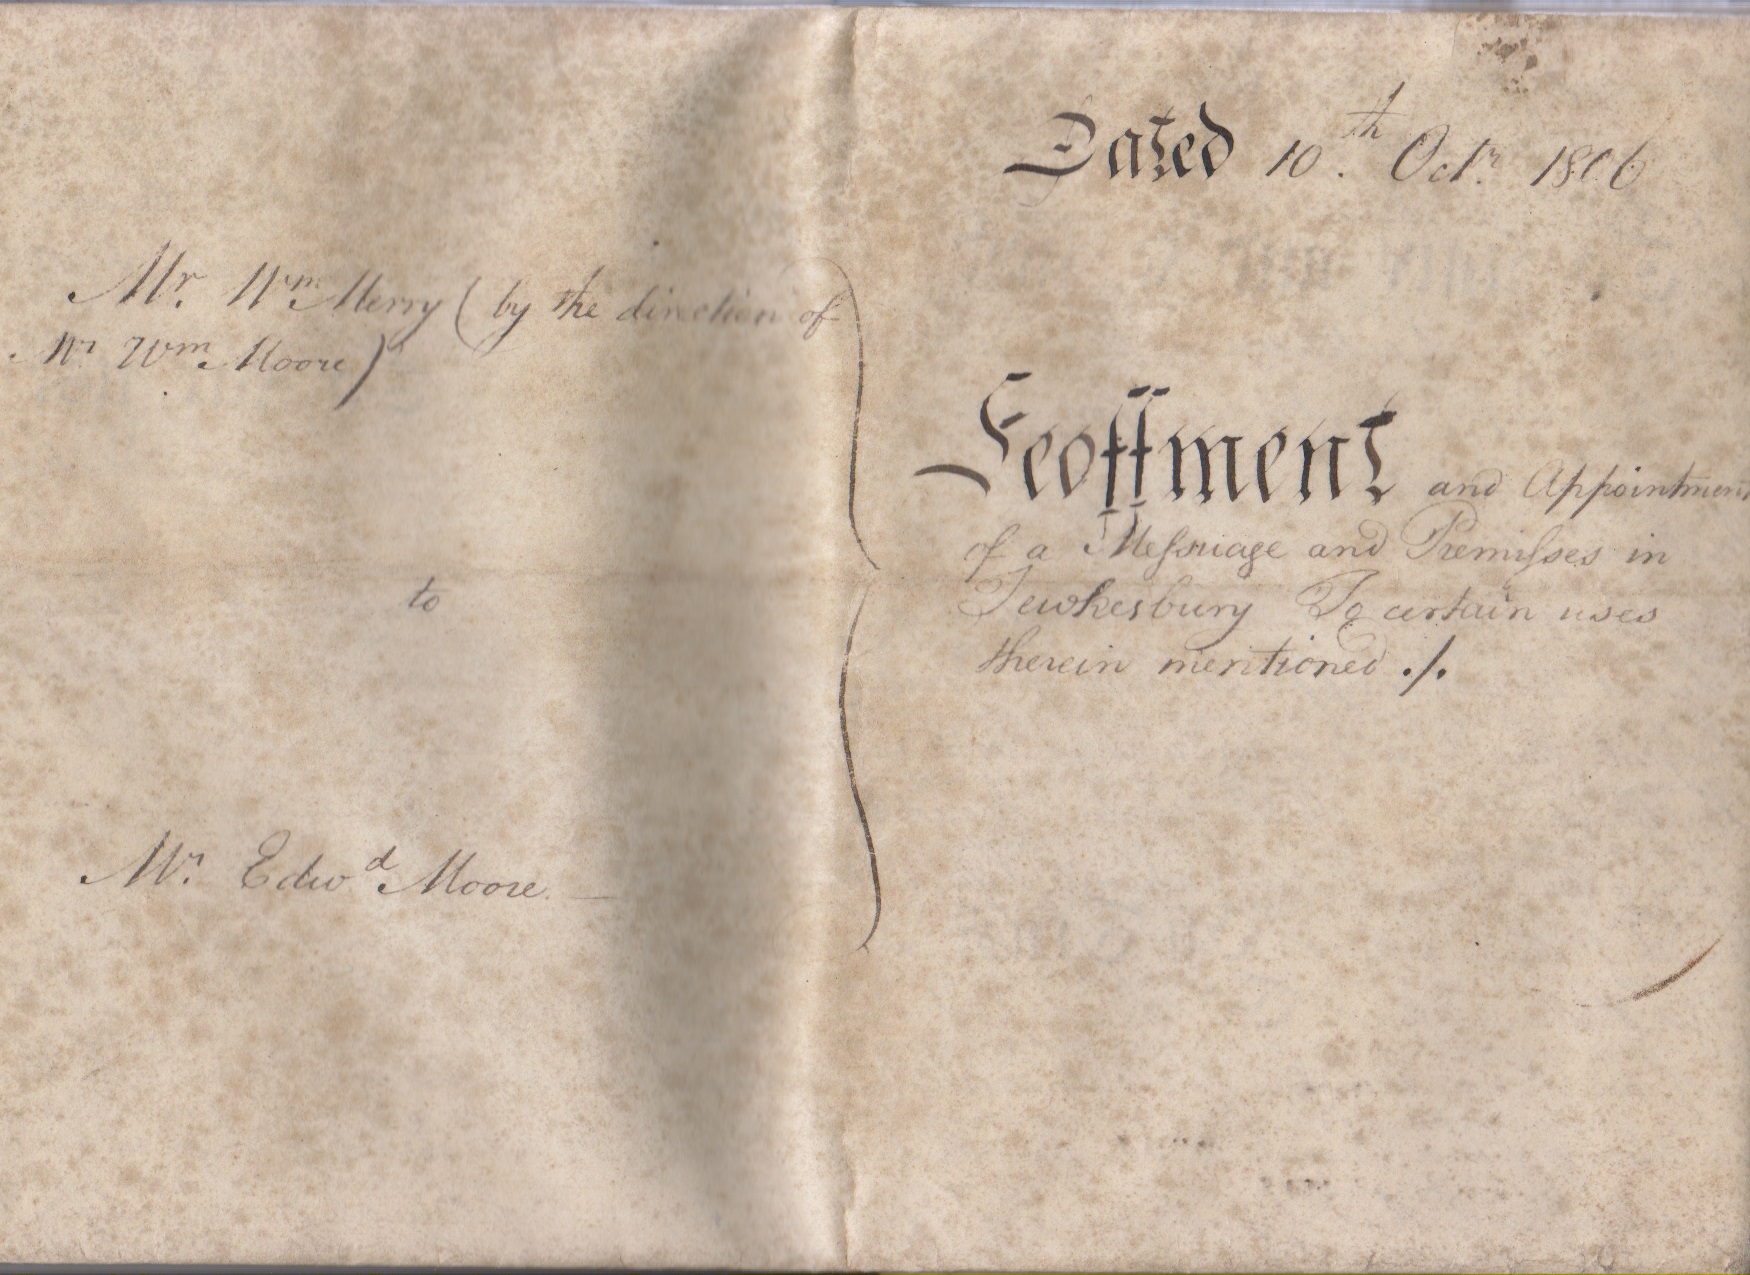 Dated 10th. Octr. 1806
Mr. Wm Merry ( by the direction of
Mr. Wm Moore)
to
Mr. Edwd Moore.
Feoffment and Appointment
of a Meſsuage and Premiſses in
Tewkesbury To certain uses
therein mentioned ./.